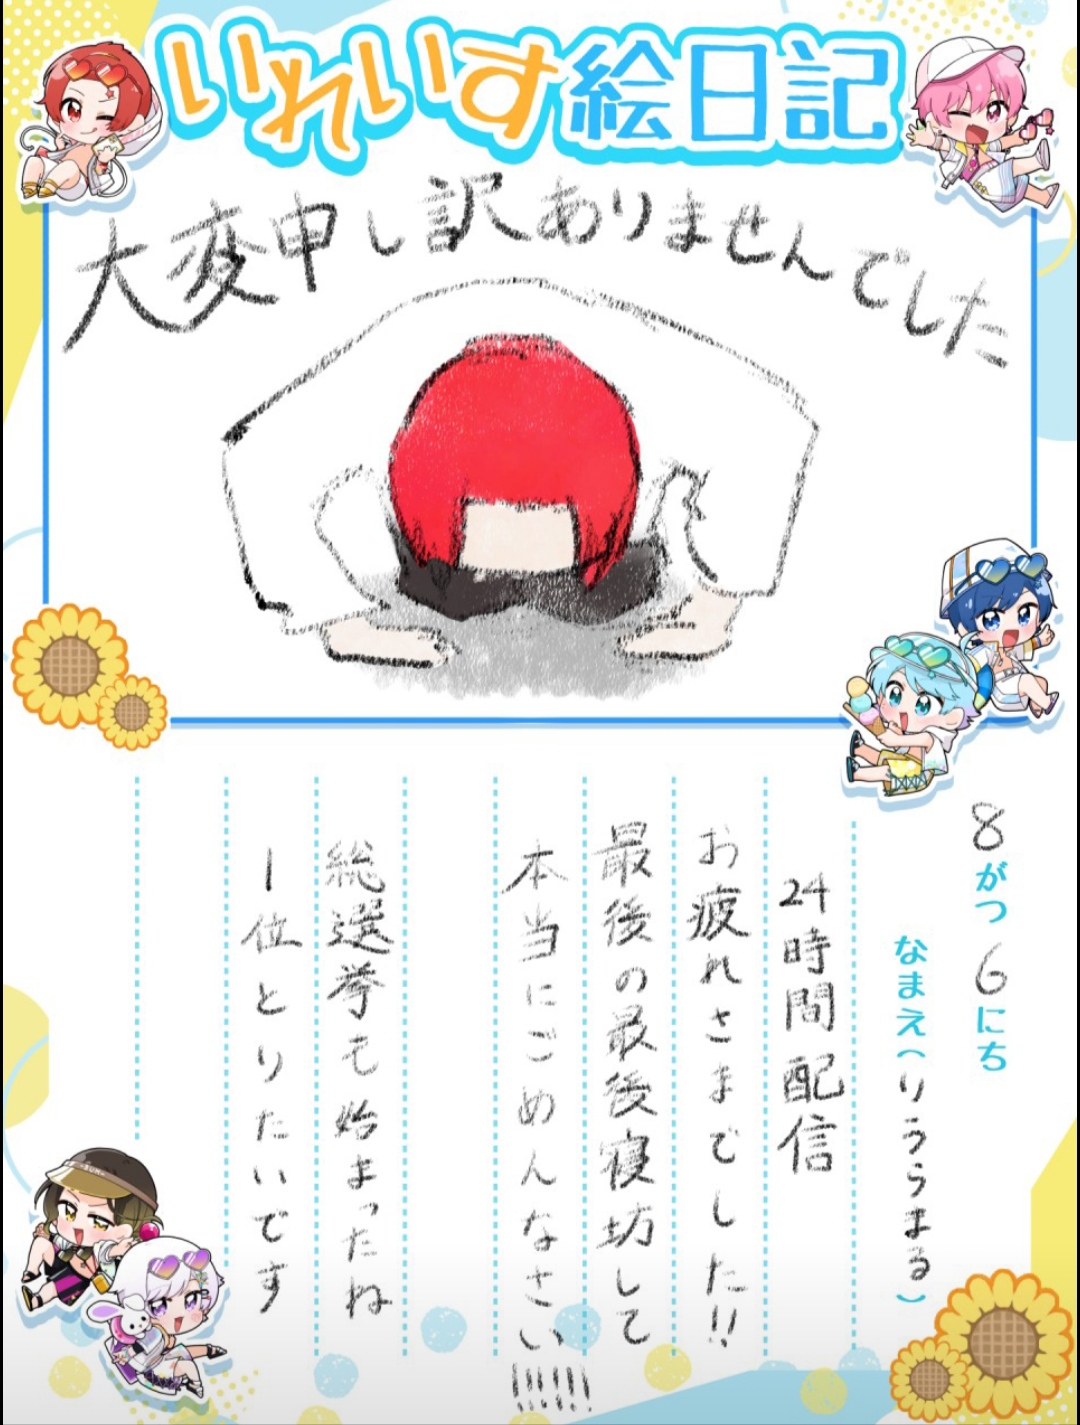 いれいす絵日記
大変申し訳ありませんでした
8がつ6にち
なまえ(りうらまる)
24時間配信
お疲れさまでした!!
最後の最後寝坊して
本当にごめんなさい!!!!!!
総選挙も始まったね
1位とりたいです